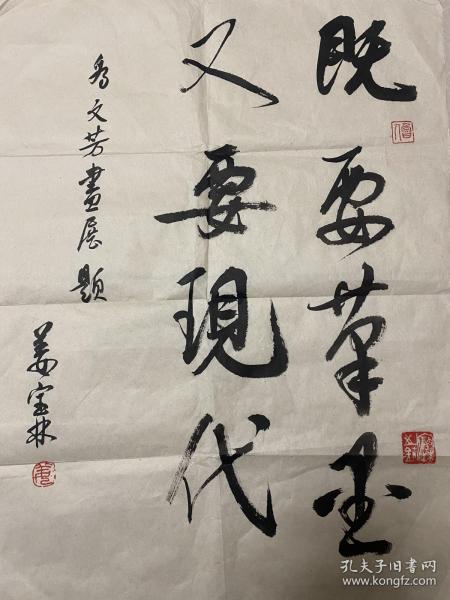 既要笔墨
又要现代
为文芳畫展题
姜宝林
孔夫子旧书网
www.kongfz.com